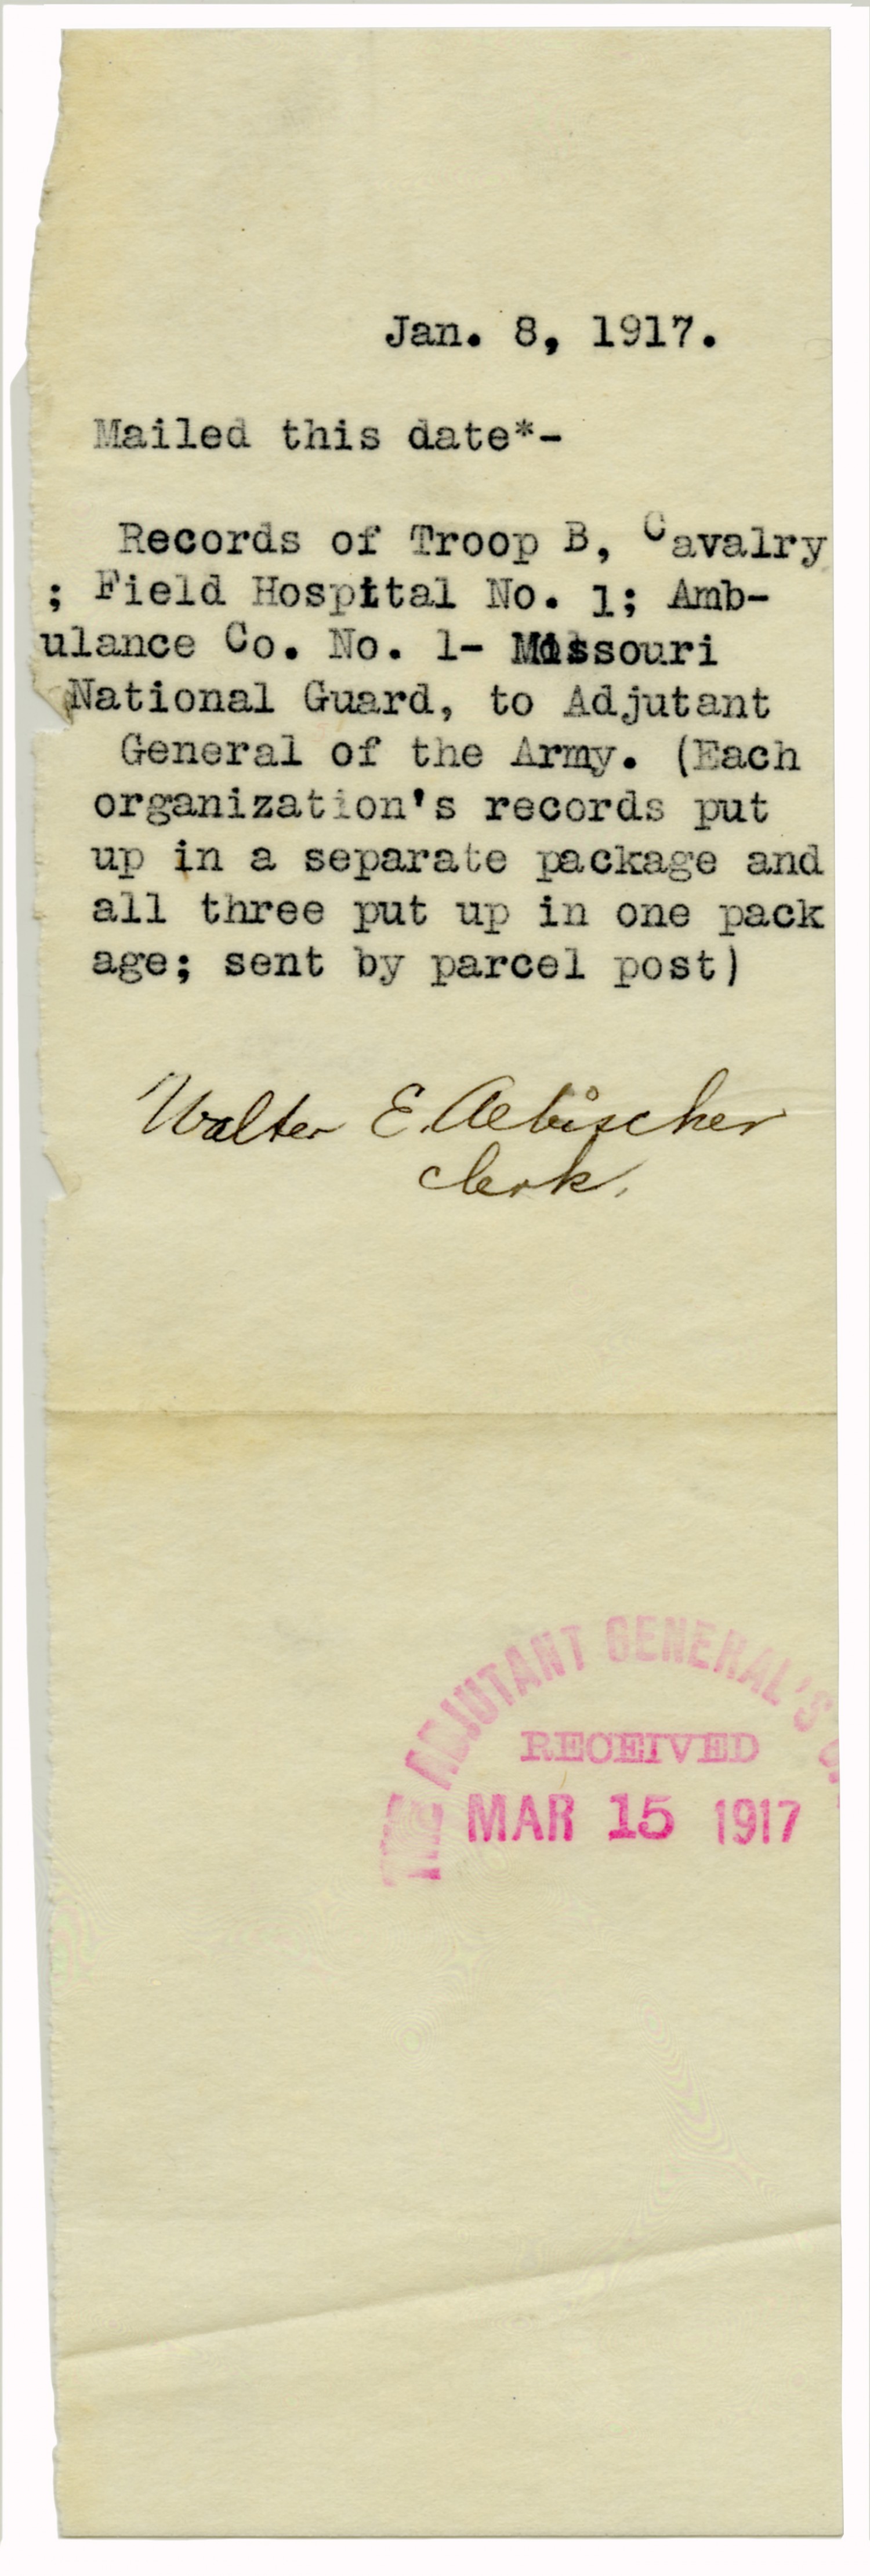 Jan. 8, 1917.
Mailed this date*-
Records of Troop B, Cavalry
; Field Hospital No. 1; Amb-
ulance Co. No. 1- Missouri
National Guard, to Adjutant
General of the Army. (Each
organization's records put
up in a separate package and
all three put up in one pack
age; sent by parcel post)
Walter E. Aebischer
Clerk.
THE ADJUTANT GENERAL'S
RECEIVED
MAR 15 1917